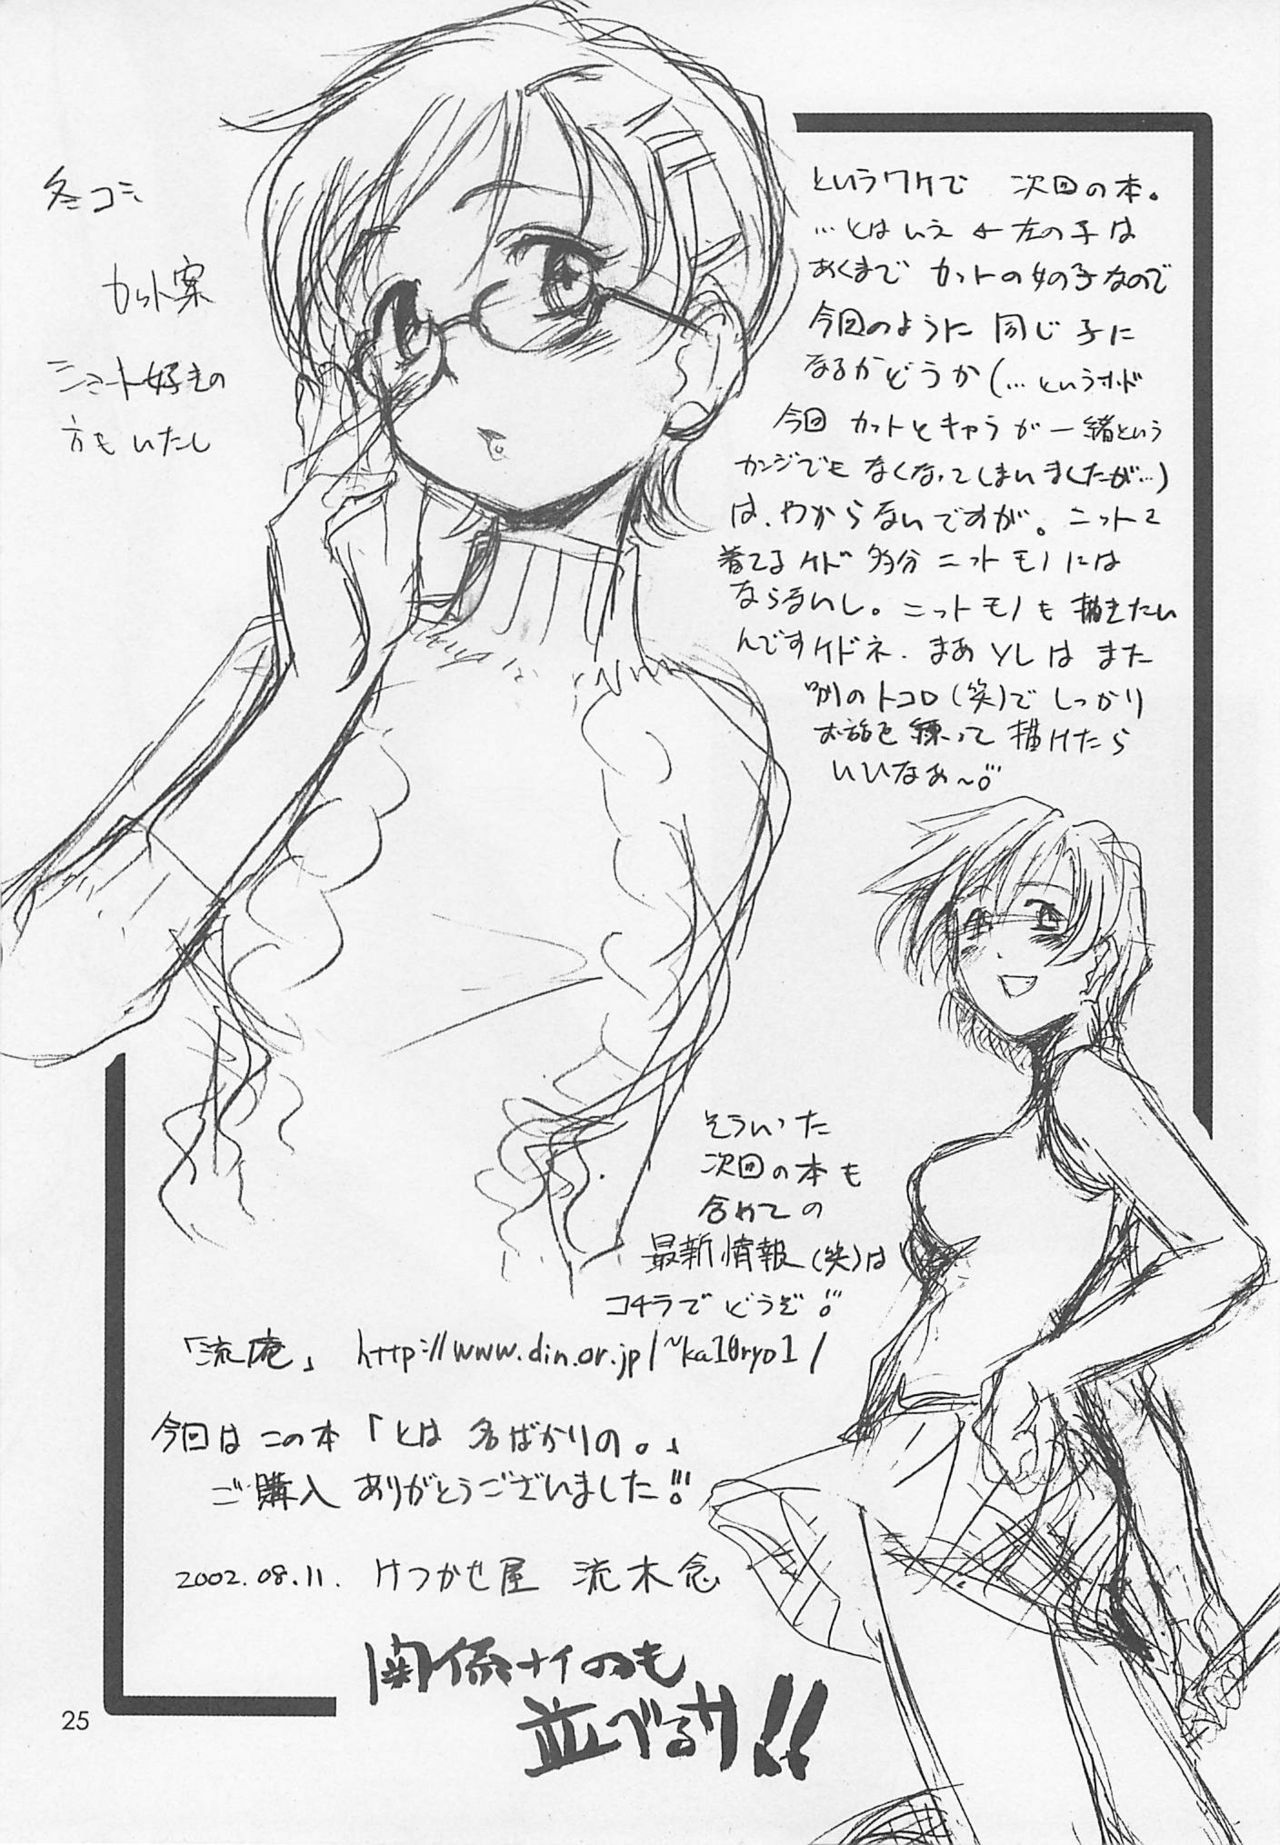 というワケで 次回の本。
…とはいえ ← 左の子は
あくまで カットの女の子なので
今回のように 同じ子に
なるかどうか(…というホド
今回 カットとキャラが一緒という
カンジでも なくなってしまいましたが…)
は、わからないですが。ニット
着てるケド 多分 ニットモノには
ならないし。ニットモノも 描きたい
んですケドネ. まあソレは また
別のトコロ(笑)で しっかり
お話を 練って 描けたら
いいなあ〜
冬コミ
カット案
ショート好きの
方もいたし
そういった
次回の本も
含めての
最新情報(笑)は
コチラで どうぞ!!
「流庵」 http://www.din.or.jp/~ka10ryo1/
今回は この本「とは 名ばかりの。」
ご購入 ありがとうございました!!
2002.08.11. けつかせ屋 流木念
関係ナイのも
並べるサ!!
25